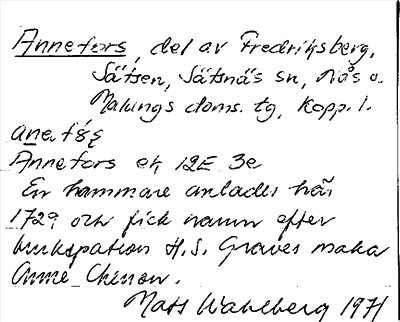 Annefors, del av Fredriksberg,
Säfsen, Säfsnäs sn, Nås o.
Malungs doms. tg, Kopp. l.
Annefors ek 12E 3e
En hammare anlades här
1729 och fick namn efter
brukspatron H.S. Graves maka
Anne Chenon.
Mats Wahlberg 1971